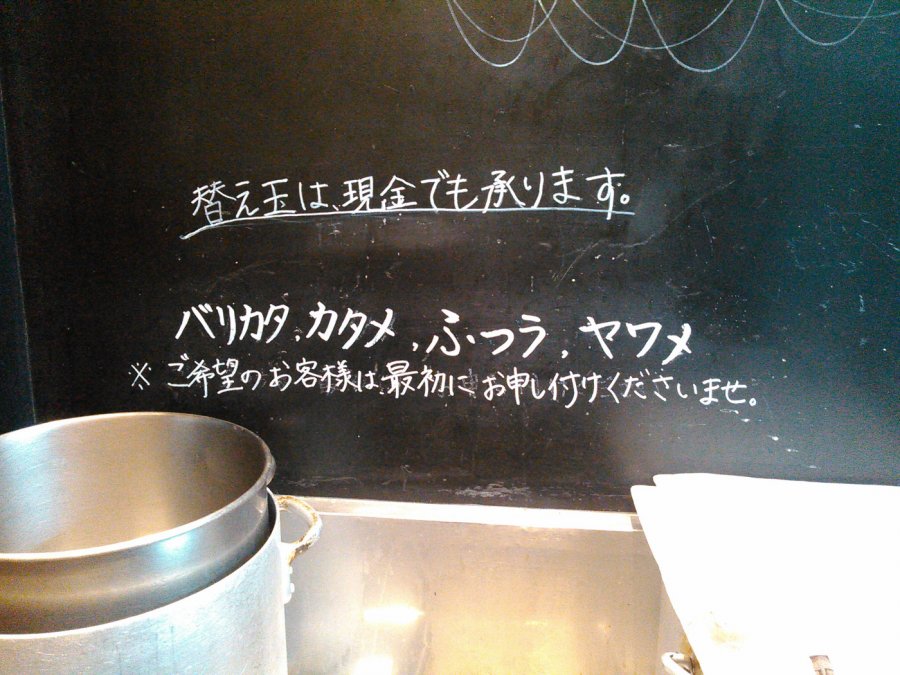 替え玉は、現金でも承ります。
バリカタ、カタメ、ふつう、ヤワメ
※ ご希望のお客様は最初にお申し付けくださいませ。